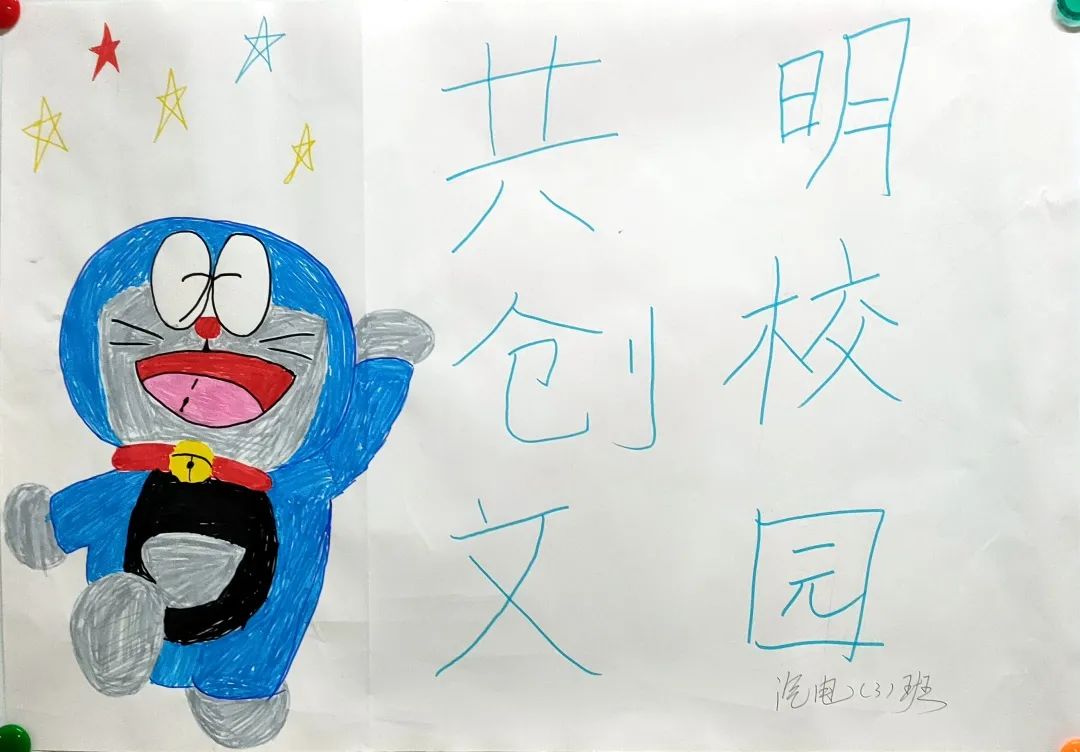 共创文
明校园
汽电(3)班